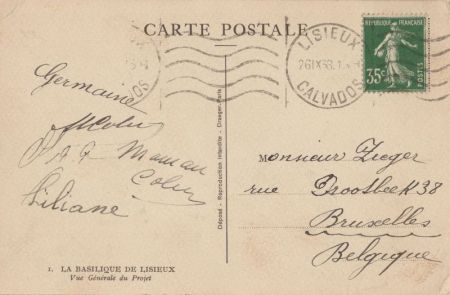 CARTE POSTALE
LISIEUX
CALVADOS
REPUBLIQUE FRANÇAISE
35c
POSTES
OS
Germaine
Maman
Colin
Liliane
Déposé - Reproduction interdite - Draeger, Paris
Monsieur Zieger
rue Drootbeek 38
Bruxelles
Belgique
1. LA BASILIQUE DE LISIEUX
Vue Générale du Projet